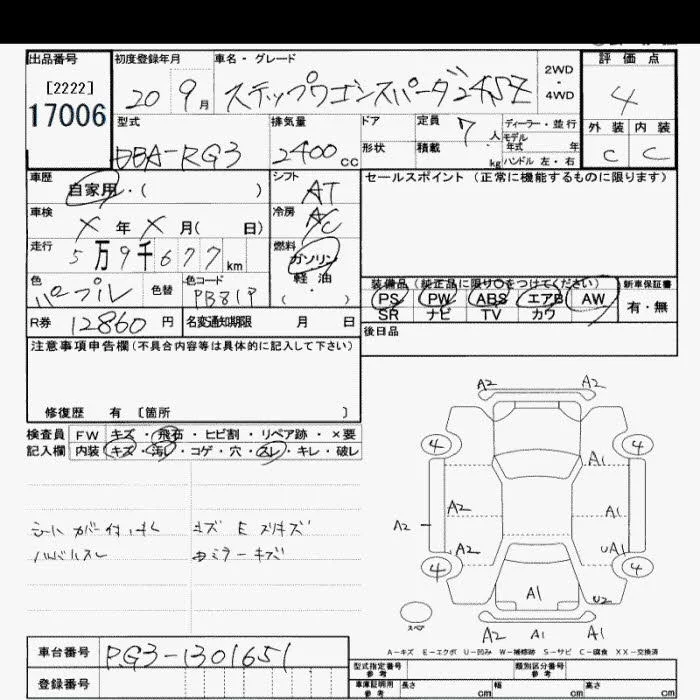 出品番号 初度登録年月 車名・グレード 評価点
[2222]
17006
20 9月 ステップワゴンスパーダ24SZ 2WD・4WD 4
型式 排気量 ドア 定員 7人 ディーラー・並行 外装 内装
モデル年式 年
DBA-RG3 2400cc 形状 積載 kg ハンドル 左・右 C C
車歴 自家用・( ) シフト AT セールスポイント (正常に機能するものに限ります)
車検 X年X月( 日) 冷房 A/C
走行 5万9千677km 燃料 ガソリン
軽油
・( )
色 パープル 色替 色コード PB81P 装備品 (純正品に限り○をつけてください) 新車保証書
PS PW ABS エアB AW 有・無
SR ナビ TV カワ
R券 12860円 名変通知期限 月 日 後日品
注意事項申告欄 (不具合内容等は具体的に記入して下さい)
修復歴 有 [箇所 ]
検査員 FW キズ・飛石・ヒビ割・リペア跡・×要
記入欄 内装 キズ・汚レ・コゲ・穴・スレ・キレ・破レ
キズ E スリキズ
ハンドルスレ ミラーキズ
A2 A2
4 4
A1
A2 A1
A2
A2 UA1
4 4
A1 U2
スペア
A2 A1 A2
A-キズ E-エクボ U-凹み W-補修跡 S-サビ C-腐食 XX-交換済
車台番号 RG3-1301651
型式指定番号 参考 類別区分番号 参考
登録番号 車庫証明用 参考 長さ cm 幅 cm 高さ cm